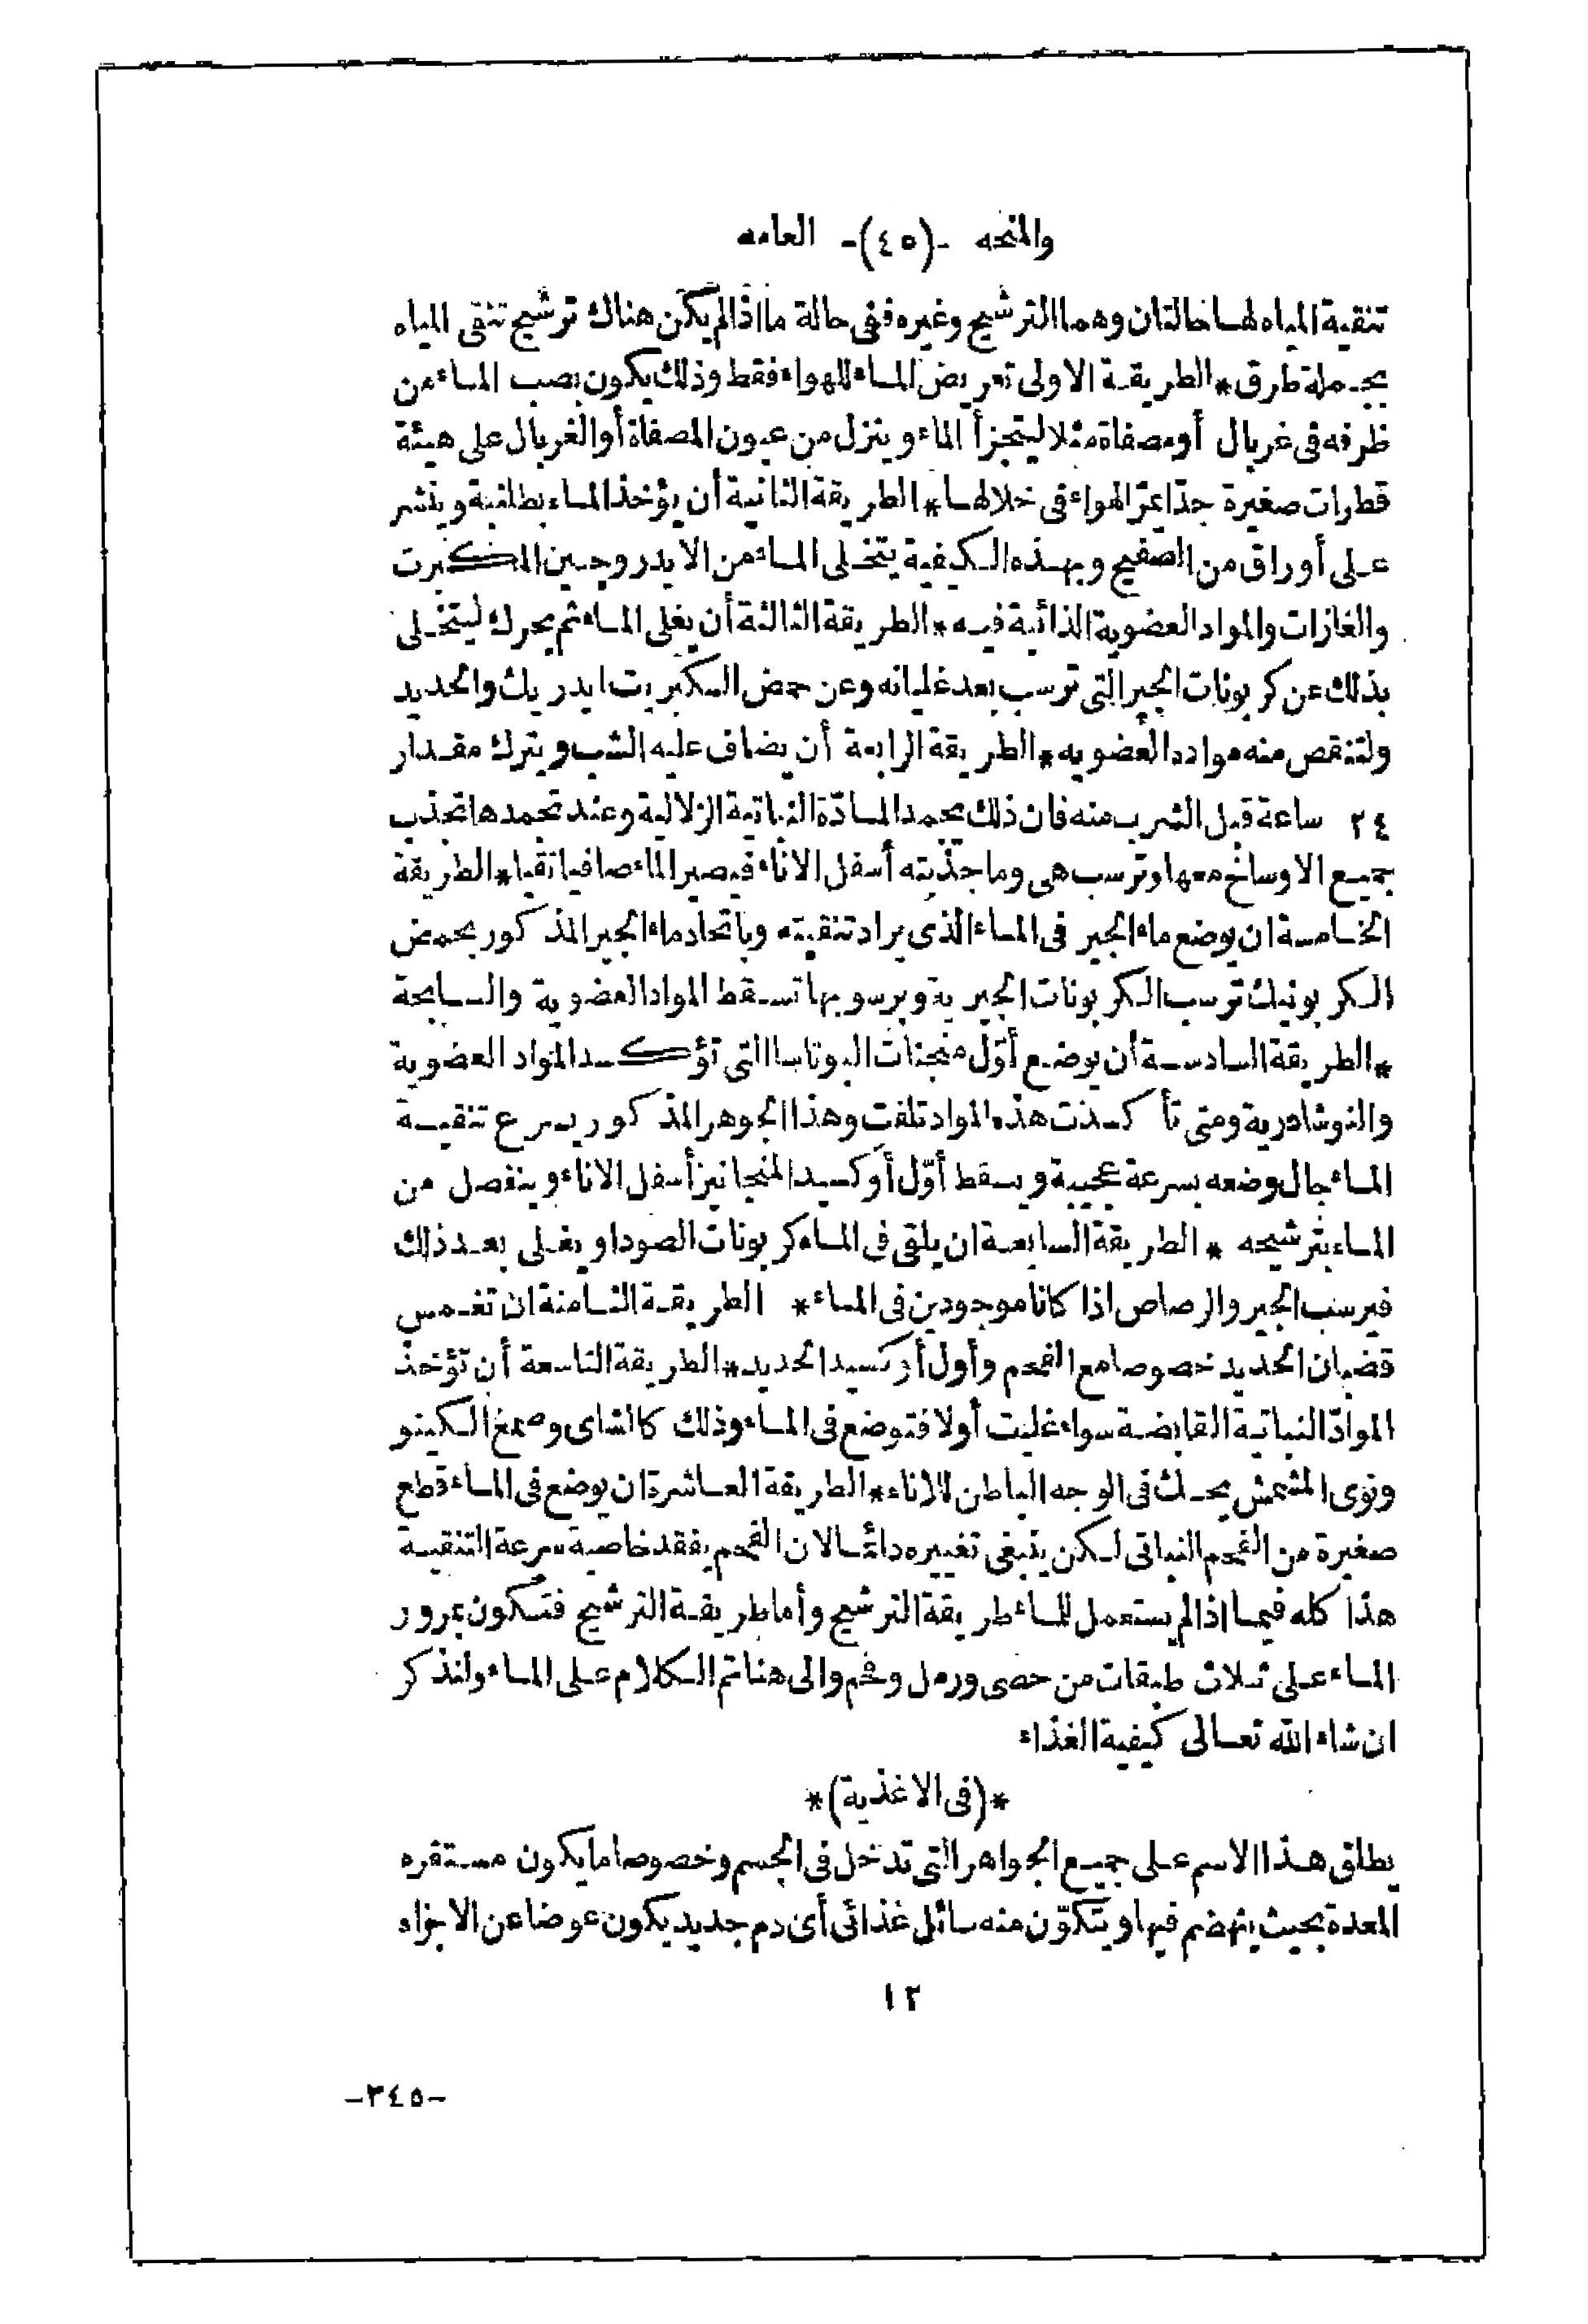 والمنحه -(٤٥)- العامه
تنقية المياه لها حالتان وهما الترشيح وغيره ففى حالة ما اذا لم يكن هناك ترشيح تنقى المياه
بجملة طرق * الطريقة الاولى تعريض الماء للهواء فقط وذلك يكون بصب الماء من
ظرفه فى غربال أو مصفاة مثلا ليتجزأ الماء وينزل من عيون المصفاة أو الغربال على هيئة
قطرات صغيرة جدّا يمرّ الهواء فى خلالها * الطريقة الثانية أن يؤخذ الماء بطلنبة وينشر
على أوراق من الصفيح وبهذه الكيفية يتخلى الماء من الايدروجين المكبرت
والغازات والمواد العضوية الذائبة فيه * الطريقة الثالثة أن يغلى الماء ثم يحرك ليتخلى
بذلك عن كربونات الجير التى ترسب بعد غليانه وعن حمض الكبريت ايدريك والحديد
ولتنقص منه مواده العضويه * الطريقة الرابعة أن يضاف عليه الشب ويترك مقدار
٢٤ ساعة قبل الشرب منه فان ذلك يجمد المادّة النباتية الزلالية وعند تجمدها تجذب
جميع الاوساخ معها وترسب هى وما جذبته أسفل الاناء فيصير الماء صافيا نقيا * الطريقة
الخامسة ان يوضع ماء الجير فى الماء الذى يراد تنقيته وباتحاد ماء الجير المذكور بحمض
الكربونيك ترسب الكربونات الجيرية وبرسوبها تسقط المواد العضوية والسابحة
* الطريقة السادسة أن يوضع أوّل منجنات البوتاسا التى تؤكسد المواد العضوية
والنوشادرية ومتى تأكسذت هذه المواد تلفت وهذا الجوهر المذكور يسرع تنقية
الماء حال وضعه بسرعة عجيبة ويسقط أوّل أوكسيد المنجانيز أسفل الاناء وينفصل من
الماء بترشيحه * الطريقة السابعة ان يلقى فى الماء كربونات الصودا ويغلى بعد ذلك
فيرسب الجير والرصاص اذا كانا موجودين فى الماء * الطريقة الثامنة ان تغمس
قضبان الحديد خصوصا مع الفحم وأول أوكسيد الحديد * الطريقة التاسعة أن تؤخذ
الموادّ النباتية القابضة سواء غليت أولا فتوضع فى الماء وذلك كالشاى وصمغ الكينو
ونوى المشمش يحك فى الوجه الباطن للاناء * الطريقة العاشرة ان يوضع فى الماء قطع
صغيرة من الفحم النباتى لكن ينبغى تغييره دائما لان الفحم يفقد خاصية سرعة التنقية
هذا كله فيما اذا لم يستعمل للماء طريقة الترشيح وأما طريقة الترشيح فتكون بمرور
الماء على ثلاث طبقات من حصى ورمل وفحم والى هنا تم الكلام على الماء ولنذكر
ان شاء الله تعالى كيفية الغذاء
*(فى الاغذية)*
يطلق هذا الاسم على جميع الجواهر التى تدخل فى الجسم وخصوصا ما يكون مستقره
المعدة بحيث ينهضم فيها ويتكوّن منه سائل غذائى أى دم جديد يكون عوضا عن الاجزاء
١٢
-٣٤٥-